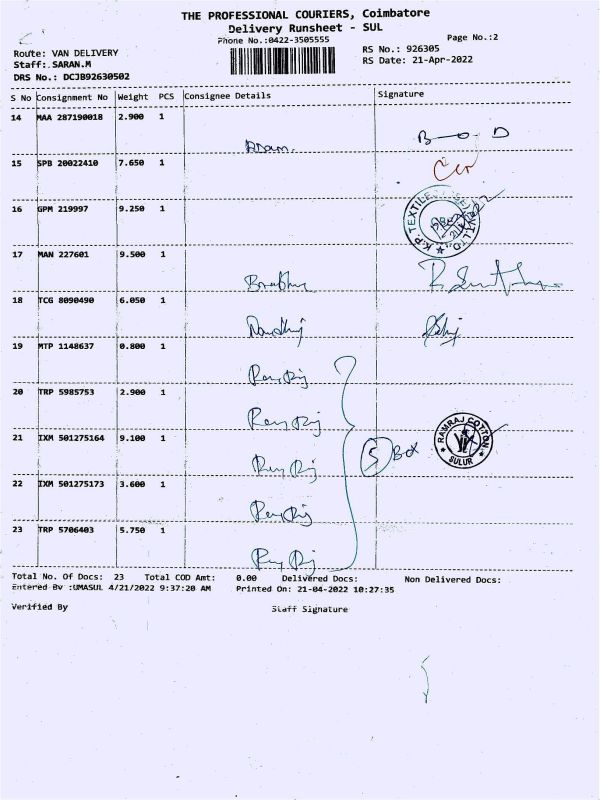 THE PROFESSIONAL COURIERS, Coimbatore
Delivery Runsheet - SUL
Phone No.:0422-3505555
Page No.:2
Route: VAN DELIVERY
RS No.: 926305
Staff: SARAN.M
RS Date: 21-Apr-2022
DRS No.: DCJB92630502
S No Consignment No Weight PCS Consignee Details Signature
14 MAA 287190018 2.900 1
15 SPB 20022410 7.650 1
16 GPM 219997 9.250 1
K.P. TEXTILE
17 MAN 227601 9.500 1
18 TCG 8090490 6.050 1
19 MTP 1148637 0.800 1
20 TRP 5985753 2.900 1
21 IXM 501275164 9.100 1
5 Box
RAMRAJ COTTON
SULUR
22 IXM 501275173 3.600 1
23 TRP 5706403 5.750 1
Total No. Of Docs: 23 Total COD Amt: 0.00 Delivered Docs: Non Delivered Docs:
Entered By :UMASUL 4/21/2022 9:37:20 AM Printed On: 21-04-2022 10:27:35
Verified By Staff Signature